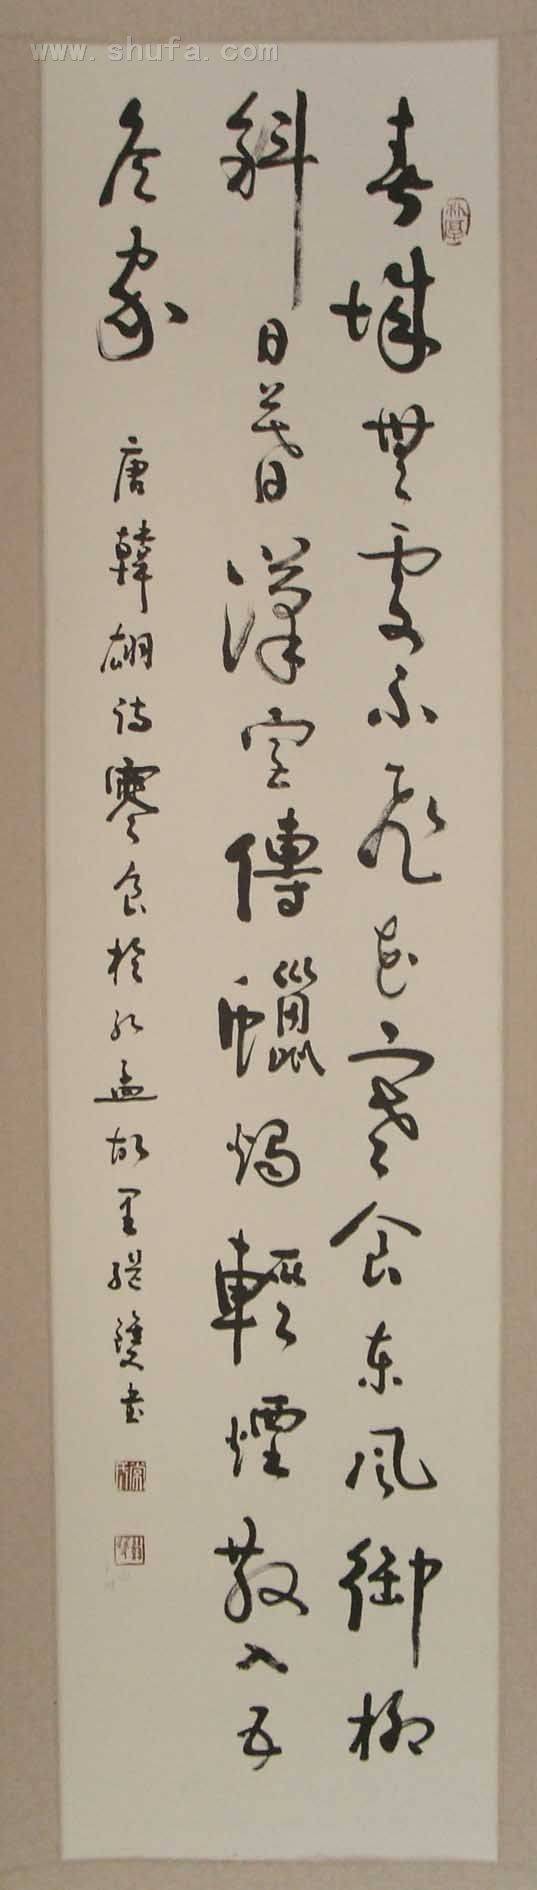 www.shufa.com
春城無處不飛花寒食東風御柳
斜日暮漢宮傳蠟燭輕煙散入五
侯家
唐韓翃詩寒食於孟故里書